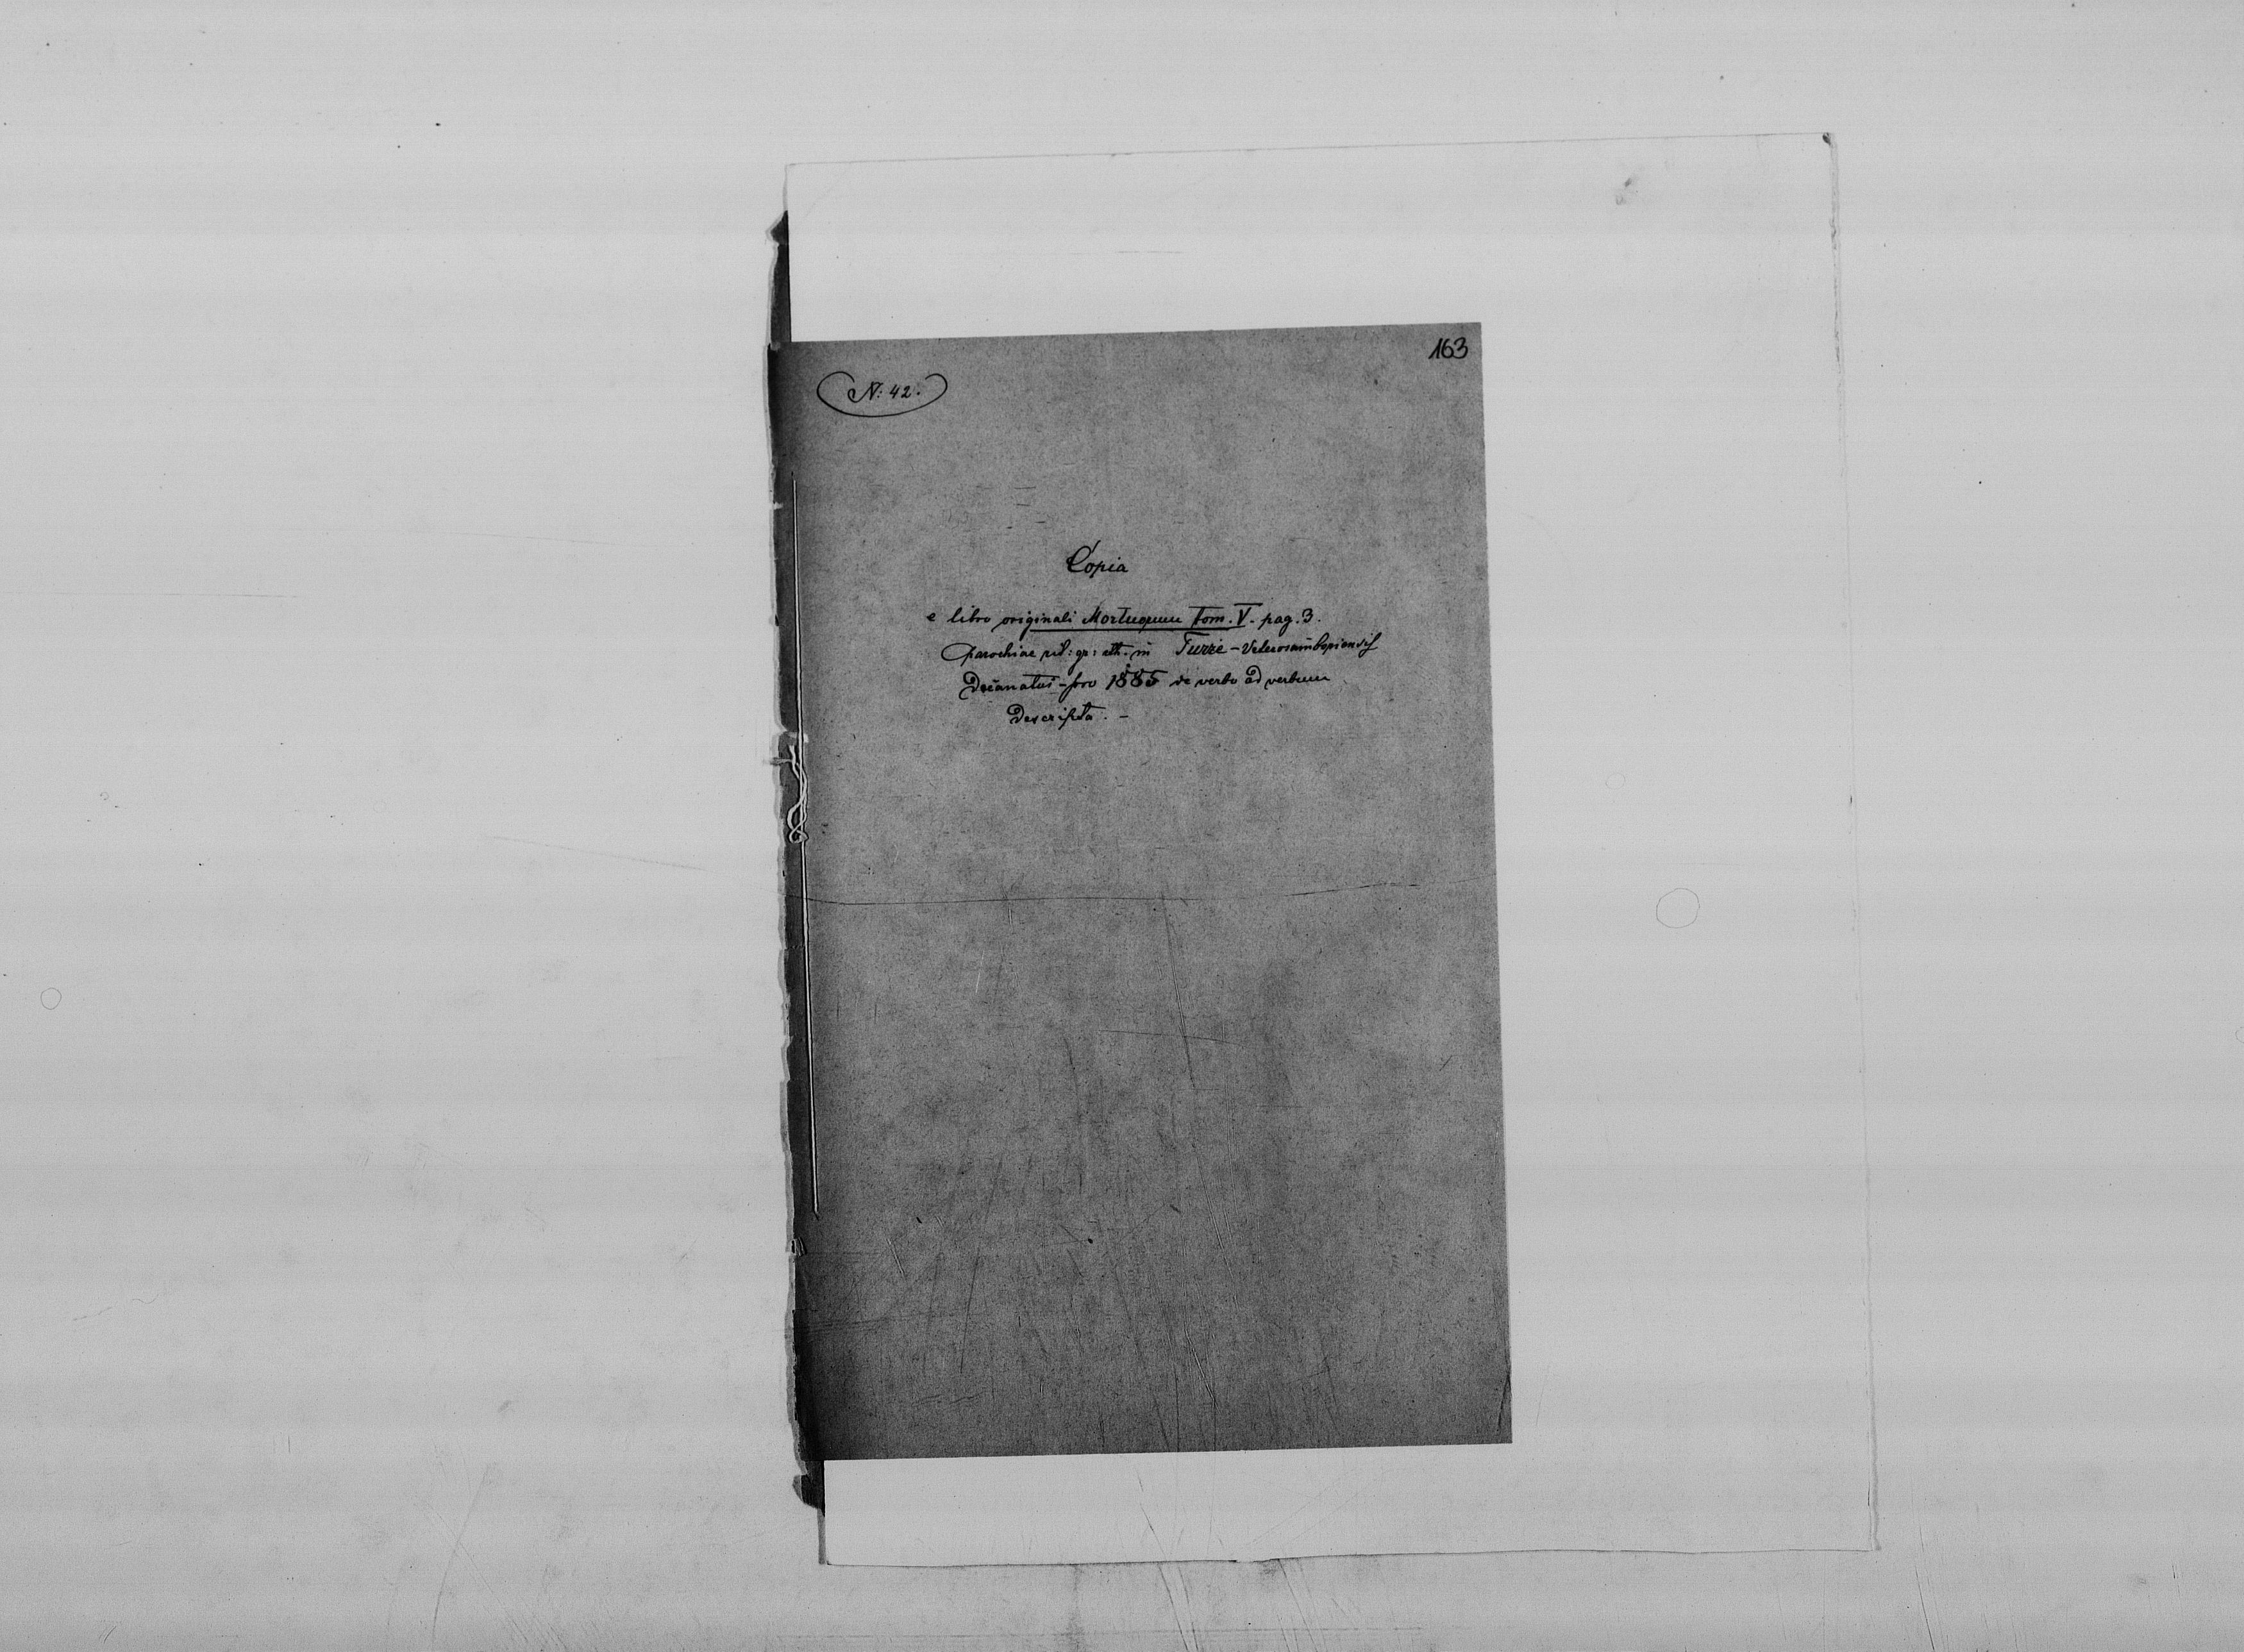 163
N: 42.
Copia
e libro originali Mortuorum tom. V. pag. 3.
parochiae rit: gr: cth. in Turze - Veterosamboriensis
Decanatus - pro 1885 de verbo ad verbum
descripta. -